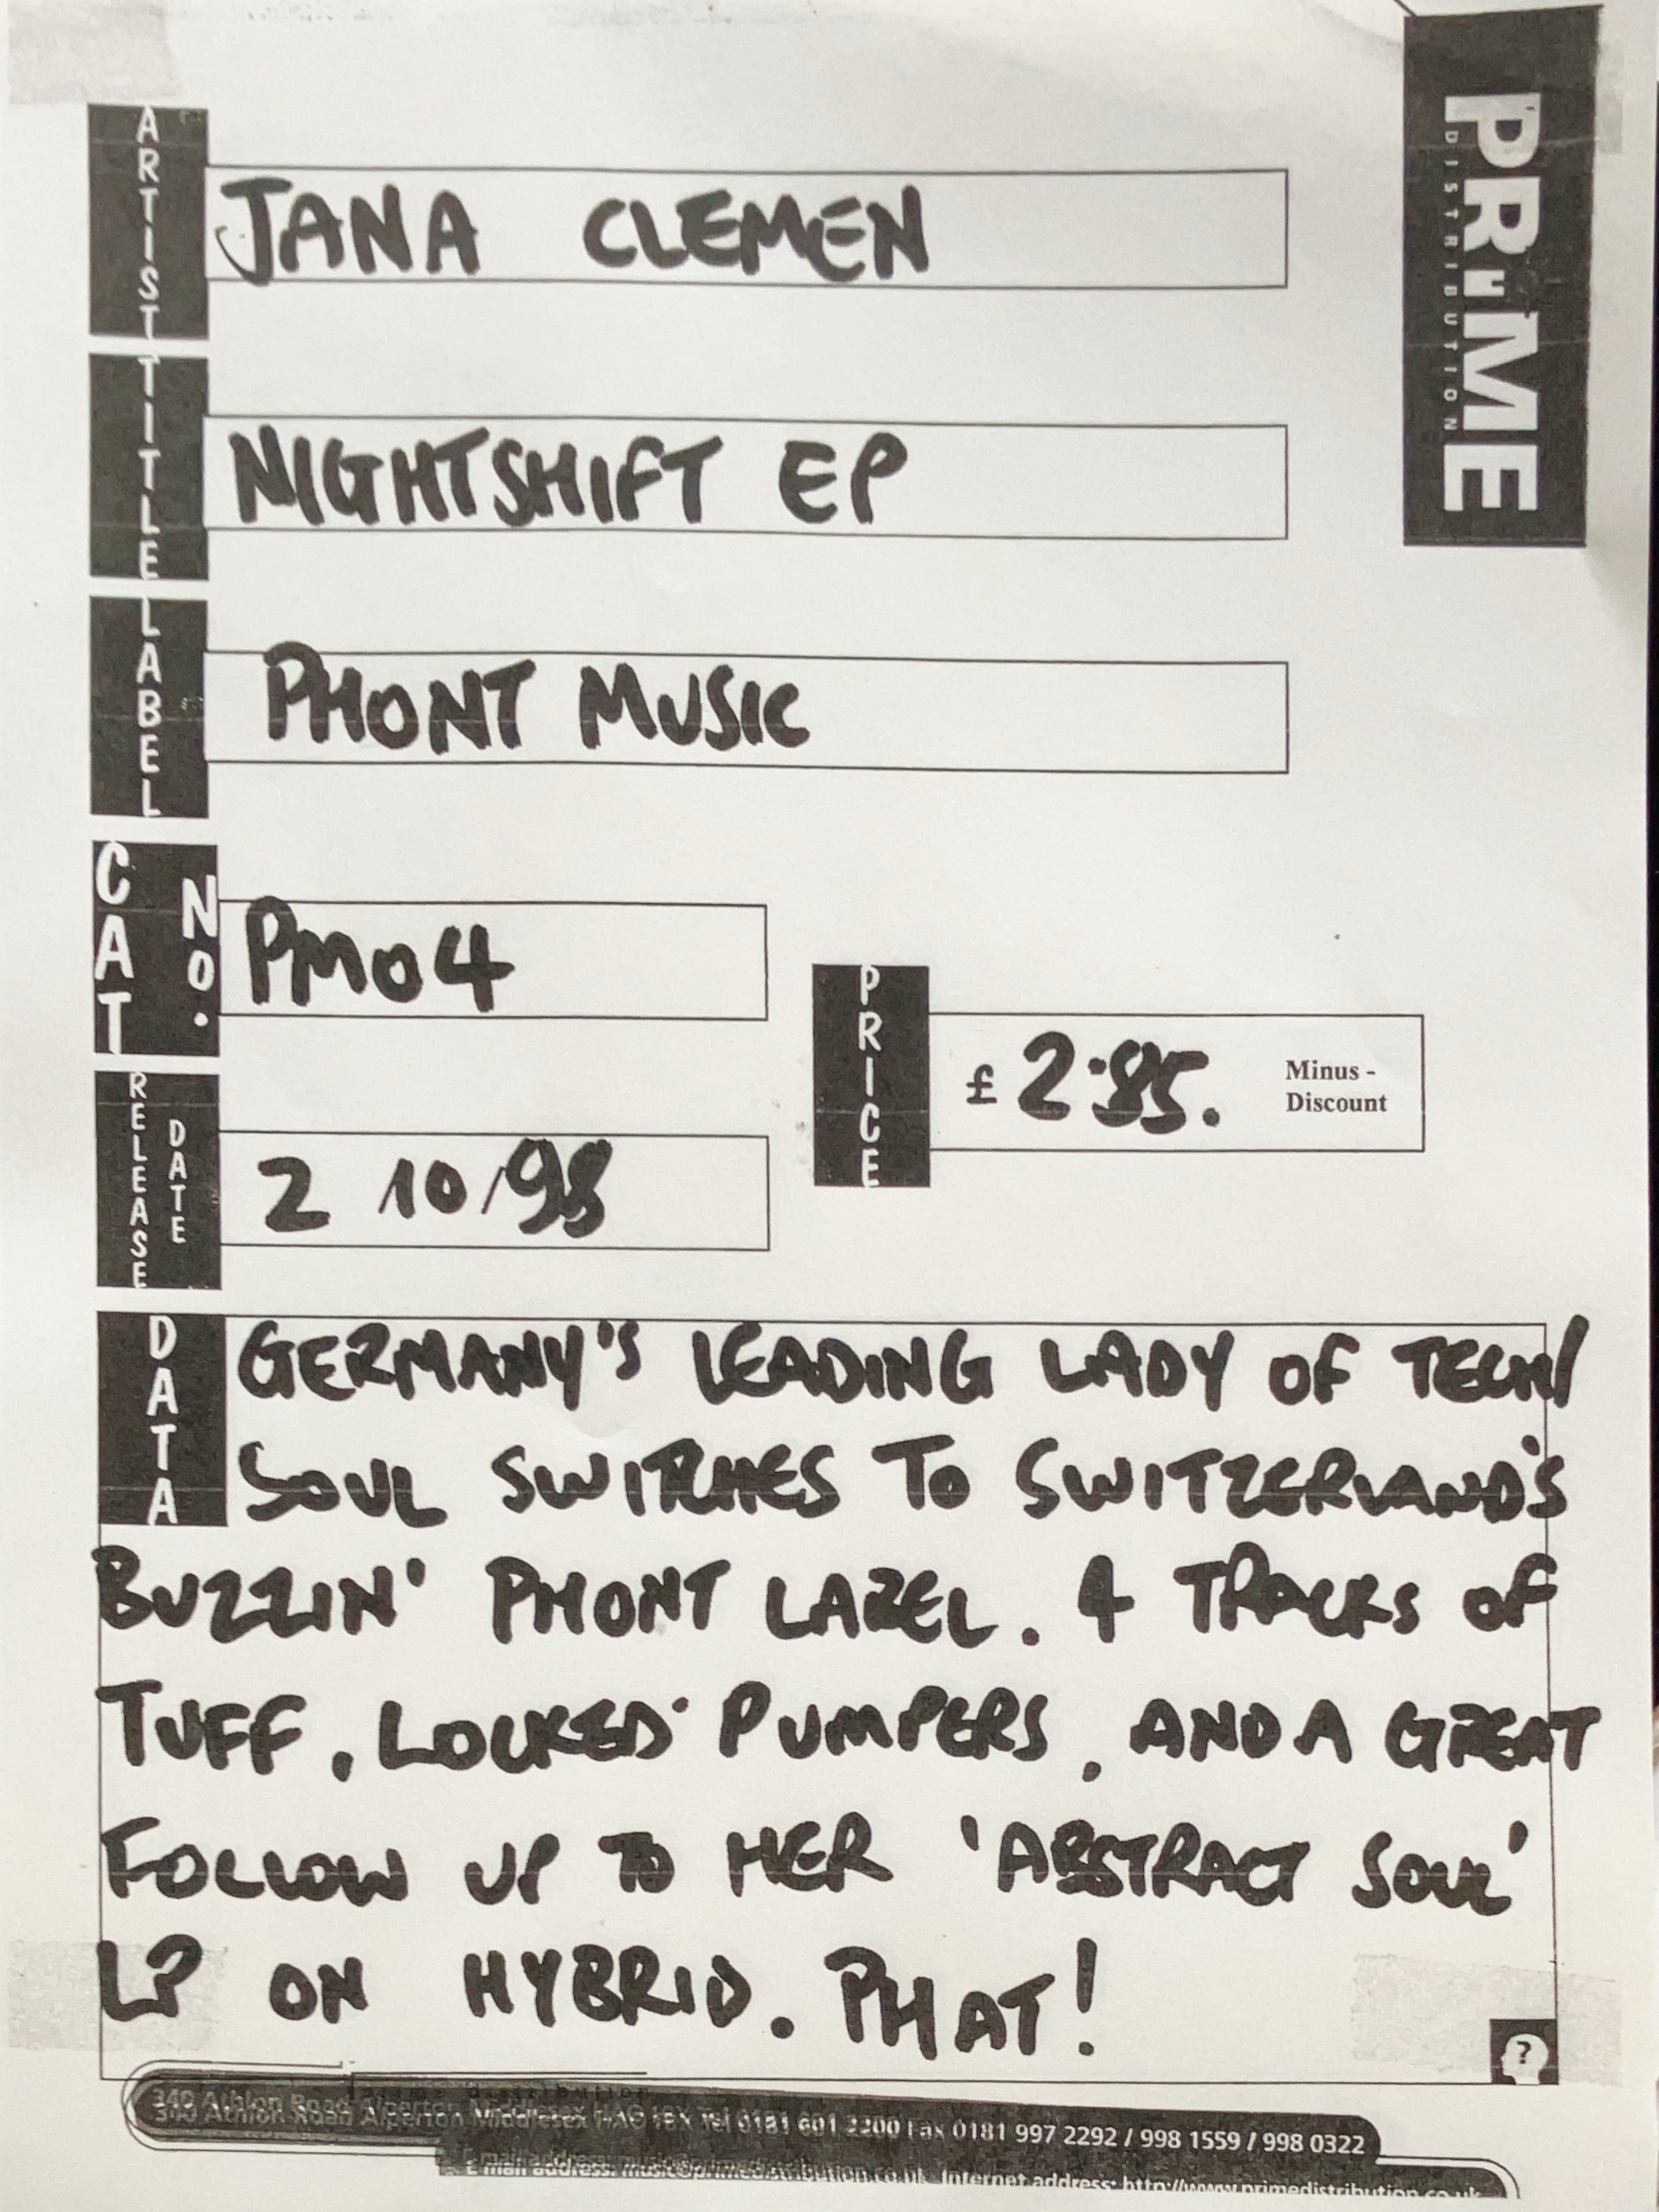 PRIME
DISTRIBUTION
ARTIST
JANA CLEMEN
TITLE
NIGHTSHIFT EP
LABEL
PHONT MUSIC
CAT NO.
PM04
PRICE
£ 2.85. Minus -
Discount
RELEASE DATE
2 10/98
DATA
GERMANY'S LEADING LADY OF TECH/
SOUL SWITCHES TO SWITZERLAND'S
BUZZIN' PHONT LABEL. 4 TRACKS OF
TUFF, LOCKED PUMPERS, AND A GREAT
FOLLOW UP TO HER 'ABSTRACT SOUL'
LP ON HYBRID. PHAT!
?
340 Athlon Road Alperton Middlesex HA0 1BX Tel 0181 601 2200 Fax 0181 997 2292 / 998 1559 / 998 0322
E-mail address: music@primedistribution.co.uk Internet address: http://www.primedistribution.co.uk